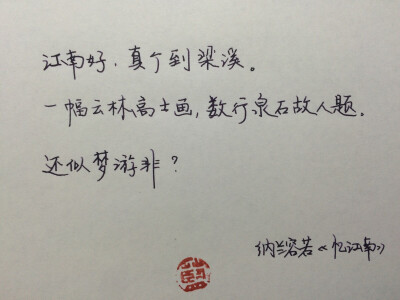 江南好，真个到梁溪。
一幅云林高士画，数行泉石故人题。
还似梦游非？
纳兰容若《忆江南》